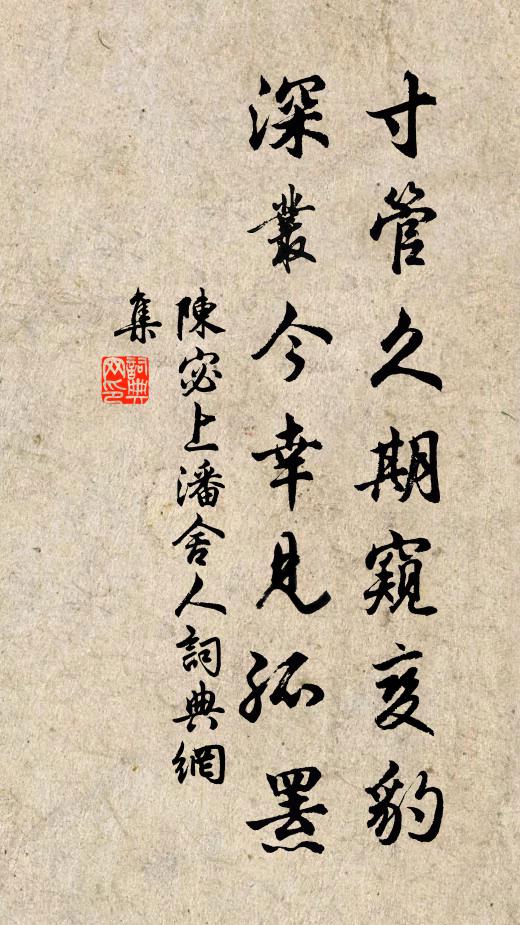 寸管久期窺变豹
深叢今幸見孤羆
陳宓上潘舍人詞典網
集
詞典网印